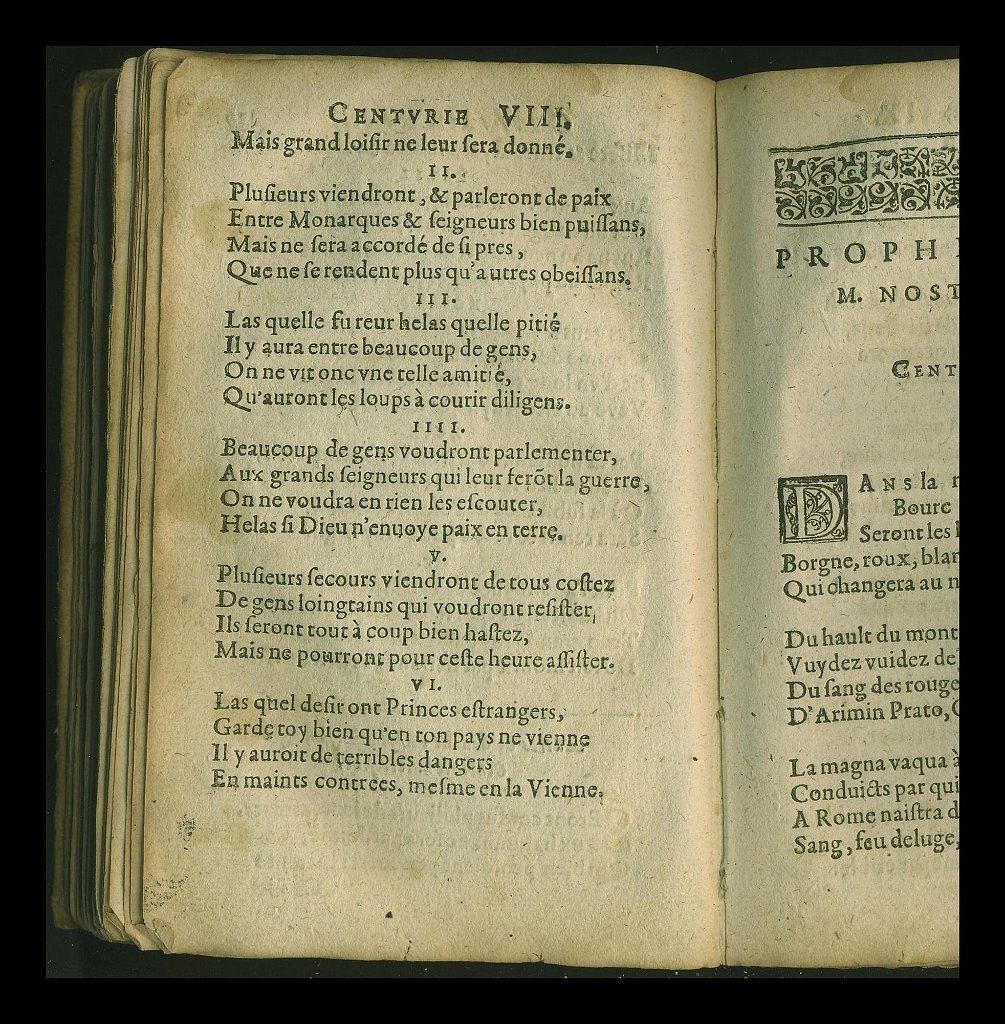 CENTVRIE VIII.
Mais grand loiſir ne leur ſera donné.
II.
Pluſieurs viendront, & parleront de paix
Entre Monarques & ſeigneurs bien puiſſans,
Mais ne ſera accordé de ſi pres,
Que ne ſe rendent plus qu'autres obeiſſans.
III.
Las quelle fureur helas quelle pitié
Il y aura entre beaucoup de gens,
On ne vit onc vne telle amitié,
Qu'auront les loups à courir diligens.
IIII.
Beaucoup de gens voudront parlementer,
Aux grands ſeigneurs qui leur ferõt la guerre,
On ne voudra en rien les eſcouter,
Helas ſi Dieu n'enuoye paix en terre.
V.
Pluſieurs ſecours viendront de tous coſtez
De gens loingtains qui voudront reſiſter,
Ils ſeront tout à coup bien haſtez,
Mais ne pourront pour ceſte heure aſſiſter.
VI.
Las quel deſir ont Princes eſtrangers,
Garde toy bien qu'en ton pays ne vienne
Il y auroit de terribles dangers
En maints contrees, meſme en la Vienne.
PROPH
M. NOST
CENT
DANS la
Boure
Seront les
Borgne, roux, blan
Qui changera au
Du hault du mont
Vuydez vuidez de
Du ſang des rouge
D'Arimin Prato,
La magna vaqua à
Conduicts par qui
A Rome naiſtra d
Sang, feu deluge,